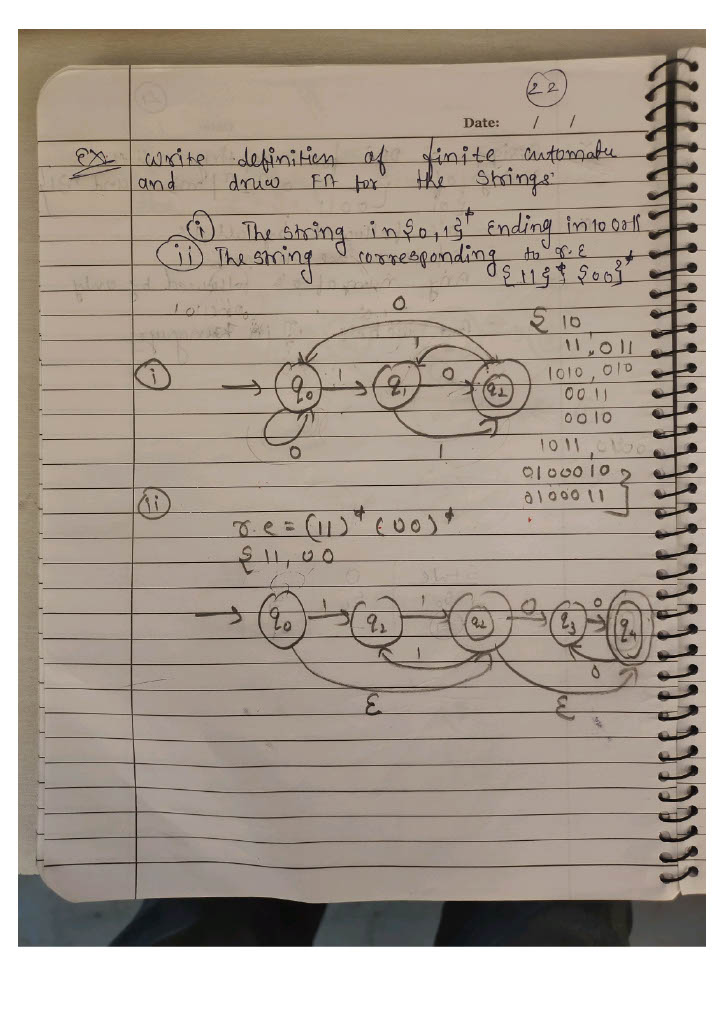 22
Date: / /
Ex Write definition of finite automata
and draw FA for the strings
(i) The string in {0,1}* Ending in 10 or 11
(ii) The string corresponding to r.e
{11}* {00}*
0
{ 10,
11, 011
(i) q0 1 q1 1 0 q2 1010, 010
0011
0010
0 1 1011,
0100010
0100011 }
(ii)
r.e = (11)* (00)*
{ 11, 00
q0 1 q1 1 q2 0 q3 0 q4
1 0
ε ε